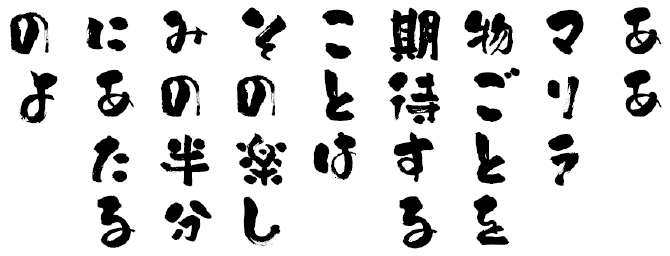 ああ
マリラ
物ごとを
期待する
ことは
その楽し
みの半分
にあたる
のよ